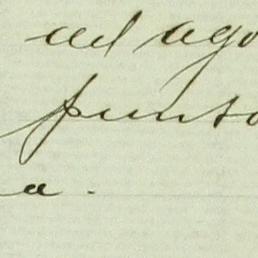 del ago
punto
a.